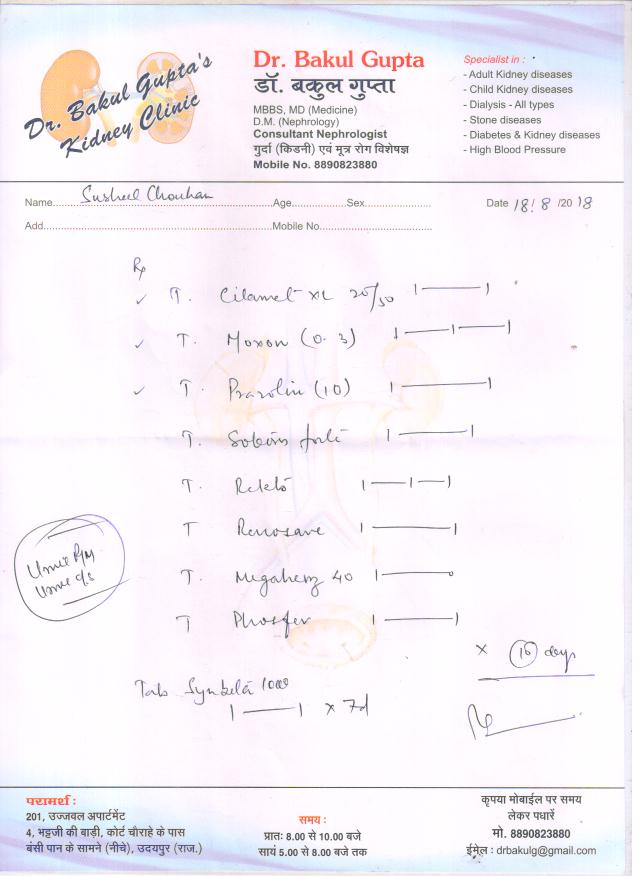 Dr. Bakul Gupta's
Kidney Clinic
Dr. Bakul Gupta
डॉ. बकुल गुप्ता
MBBS, MD (Medicine)
D.M. (Nephrology)
Consultant Nephrologist
गुर्दा (किडनी) एवं मूत्र रोग विशेषज्ञ
Mobile No. 8890823880
Specialist in :
- Adult Kidney diseases
- Child Kidney diseases
- Dialysis - All types
- Stone diseases
- Diabetes & Kidney diseases
- High Blood Pressure
Name Susheel Chouhan Age Sex Date 18/8/2018
Add. Mobile No.
Rp
✓ T. Cilamet XL 20/50 1——1
✓ T. Moxon (0.3) 1——1——1
✓ T. Prazolin (10) 1——1
T. forte 1——1
T. 1——1——1
T Renosave 1——1
T. 40 1——0
T Phosfer 1——1
Urine R/M
Urine c/s
x 15 days
Tab 1000
1——1 x 7d
परामर्श :
201, उज्जवल अपार्टमेंट
4, भट्टजी की बाड़ी, कोर्ट चौराहे के पास
बंसी पान के सामने (नीचे), उदयपुर (राज.)
समय :
प्रातः 8.00 से 10.00 बजे
सायं 5.00 से 8.00 बजे तक
कृपया मोबाईल पर समय
लेकर पधारें
मो. 8890823880
ईमेल : drbakulg@gmail.com